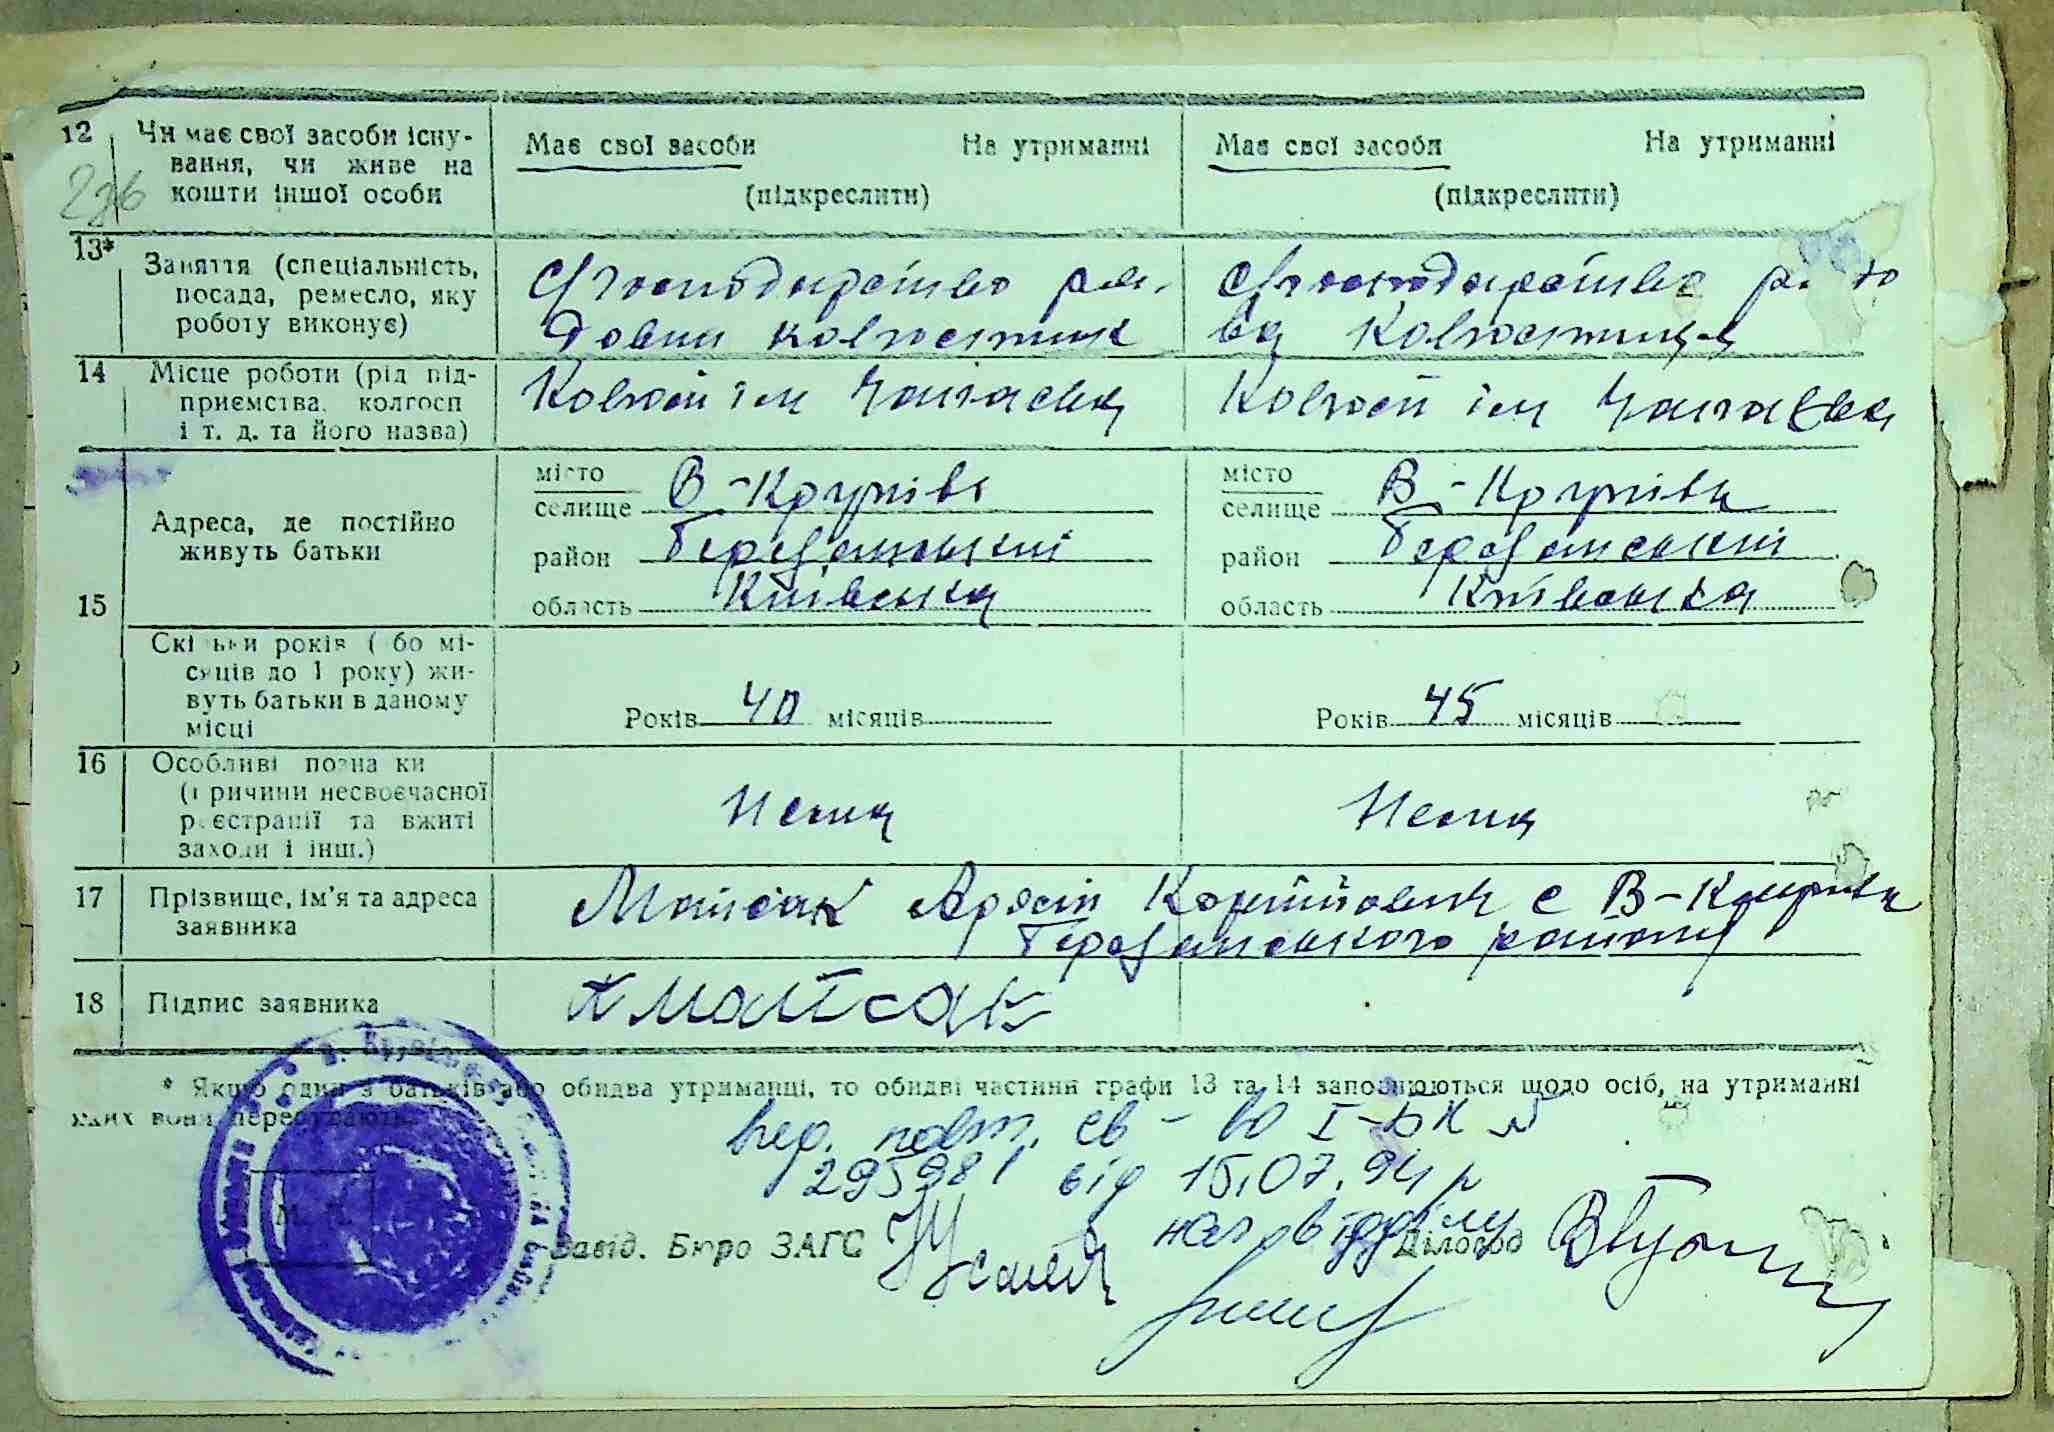 12 Чи має свої засоби існу-
вання, чи живе на
кошти іншої особи
Має свої засоби На утриманні
(підкреслити)
Має свої засоби На утриманні
(підкреслити)
13* Заняття (спеціальність,
посада, ремесло, яку
роботу виконує)
С/господарство ря-
довий колгоспник
С/господарство
ва колгоспниця
14 Місце роботи (рід під-
приємства, колгосп
і т. д. та його назва)
Колгосп ім Чапаєва
Колгосп ім Чапаєва
15 Адреса, де постійно
живуть батьки
місто
селище В-Крупівк
район Березанський
область Київська
місто
селище В-Крупівка
район Березанський
область Київська
Скільки років (або мі-
сяців до 1 року) жи-
вуть батьки в даному
місці
Років 40 місяців
Років 45 місяців
16 Особливі познаки
(причини несвоєчасної
реєстрації та вжиті
заходи і інш.)
Нема
Нема
17 Прізвище, ім'я та адреса
заявника
Мойсак с В-Крупівка
Березанського району
18 Підпис заявника
* Якщо один з батьків або обидва утриманці, то обидві частини графи 13 та 14 заповнюються щодо осіб, на утриманні
яких вони перебувають.
повт. св-во І-БК №
295981 від 15.07.94 р
нач відділу
М. П.
Завід. Бюро ЗАГС Діловод